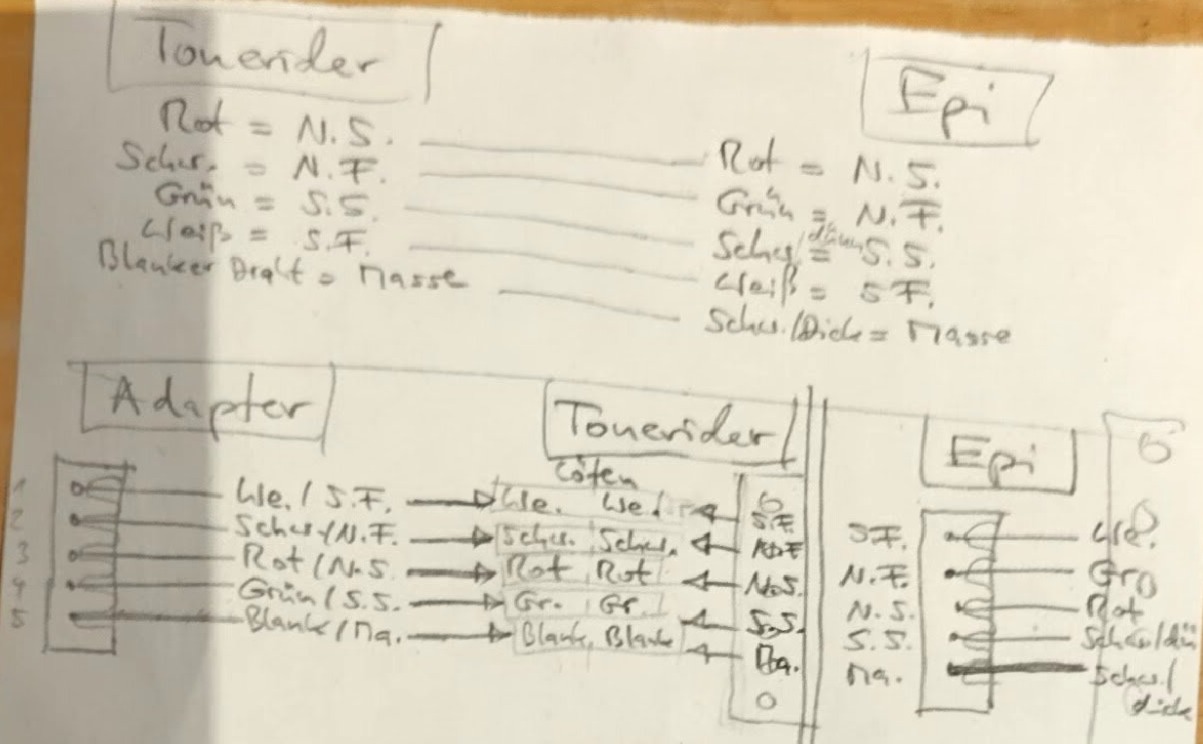 Tonerider
Rot = N.S.
Schw. = N.F.
Grün = S.S.
Weiß = S.F.
Blanker Draht = Masse
Epi
Rot = N.S.
Grün = N.F.
Schw./dünn = S.S.
Weiß = S.F.
Schw./Dick = Masse
Adapter
1 We. / S.F.
2 Schw/N.F.
3 Rot/N.S.
4 Grün/S.S.
5 Blank/Ma.
Tonerider
Löten
We. We. S.F.
Schw. Schw. N.F
Rot Rot N.S.
Gr. Gr. S.S.
Blank Blank Ma.
Epi
S.F. We.
N.F. Gr
N.S. Rot
S.S. Schw/dü
Ma. Schw./
dick